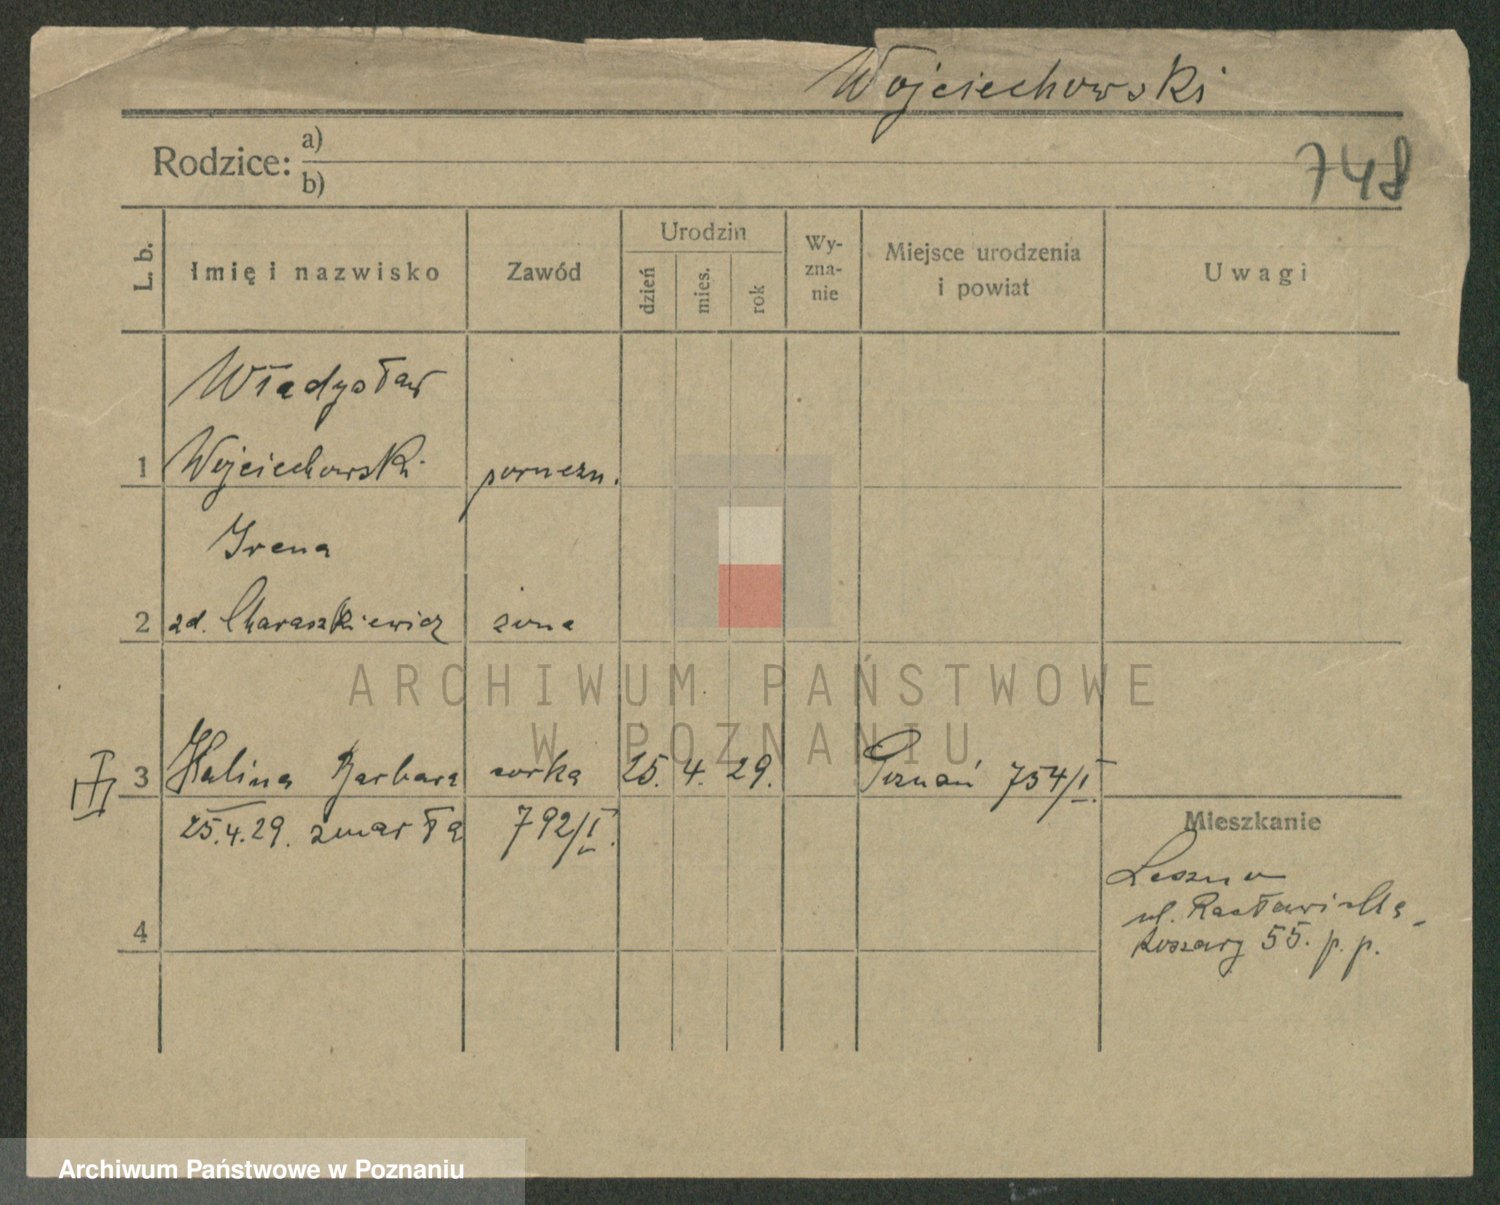 Wojciechowski
748
Rodzice: a)
b)
L. b. Imię i nazwisko Zawód Urodzin dzień mies. rok Wy-zna-nie Miejsce urodzenia i powiat Uwagi
Władysław
1 Wojciechowski poruczn.
Irena
2 zd. Charaszkiewicz żona
III 3 Halina Barbara córka 25. 4. 29. Poznań 754/I.
25.4.29. zmarła 792/I.
Mieszkanie
Leszno
ul. Racławicka
4
koszary 55. p. p.
ARCHIWUM PAŃSTWOWE
W POZNANIU
Archiwum Państwowe w Poznaniu